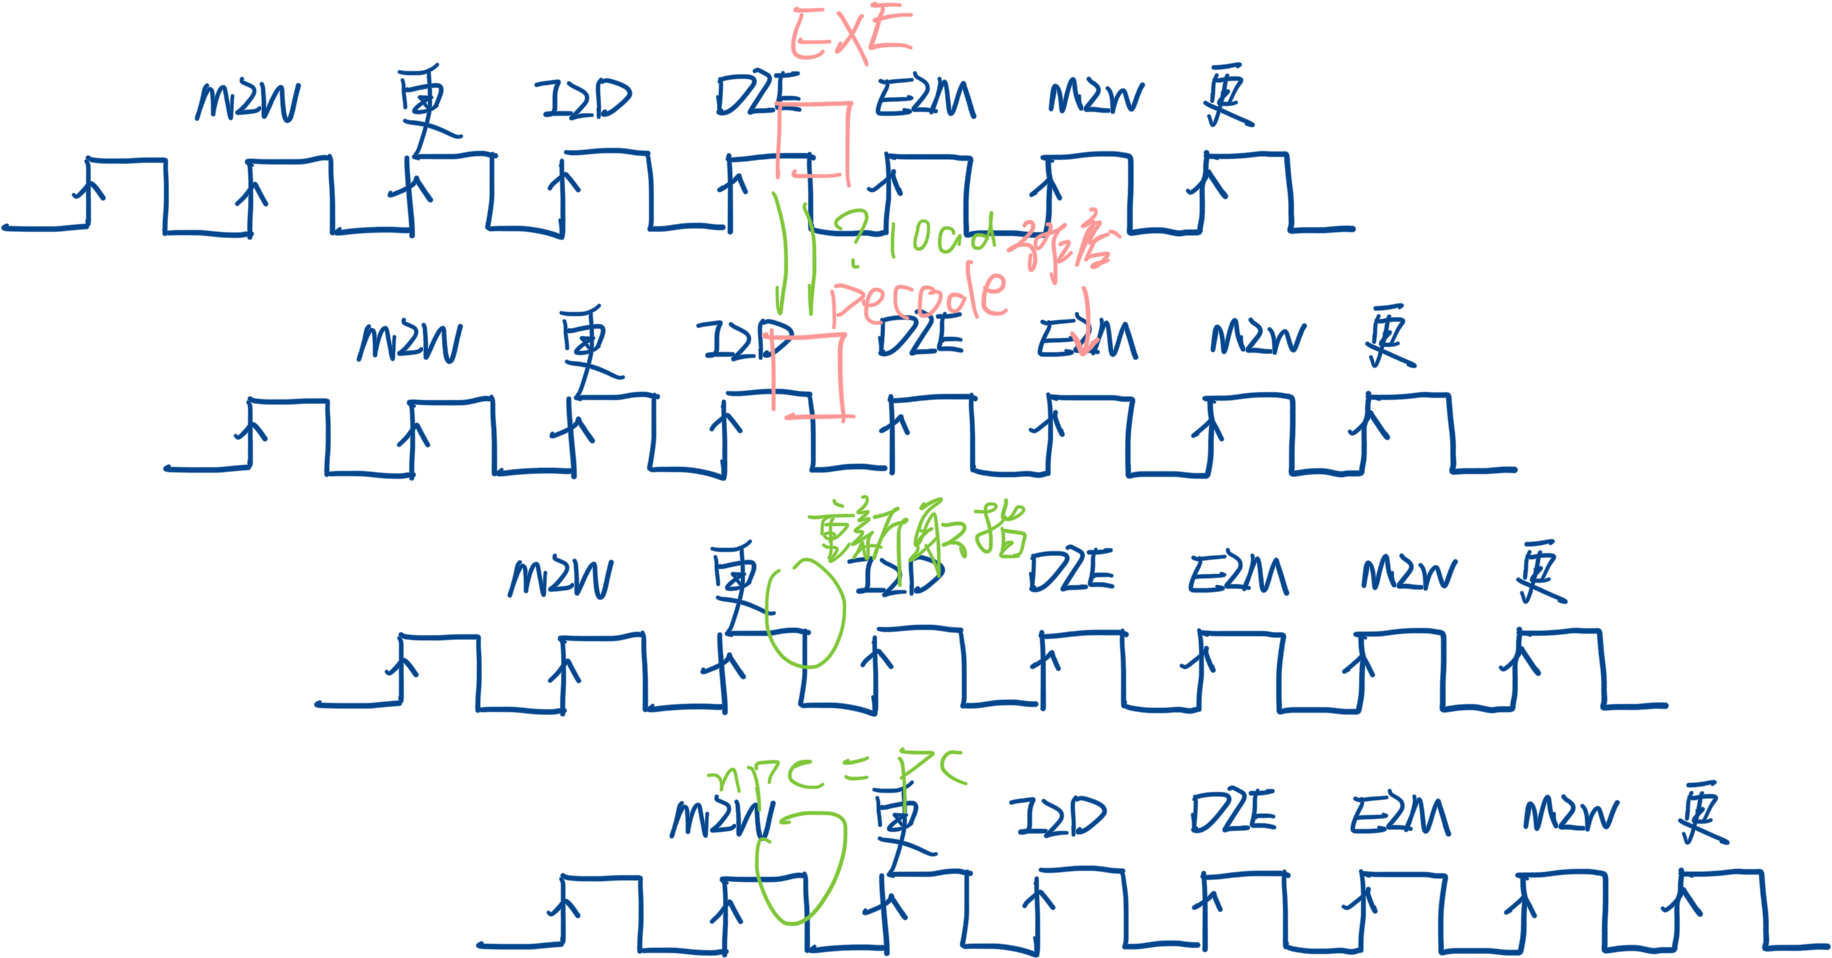 EXE
M2W 更 I2D D2E E2M M2W 更
? load
Decode
M2W 更 I2D D2E E2M M2W 更
重新取指
M2W 更 I2D D2E E2M M2W 更
nPC = PC
M2W 更 I2D D2E E2M M2W 更